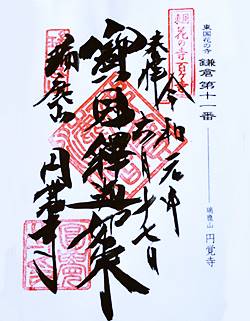 東国花の寺
鎌倉第十一番
瑞鹿山 円覚寺
奉拝 令和元年六月十七日
寳冠釋迦如来
瑞鹿山 円覚寺